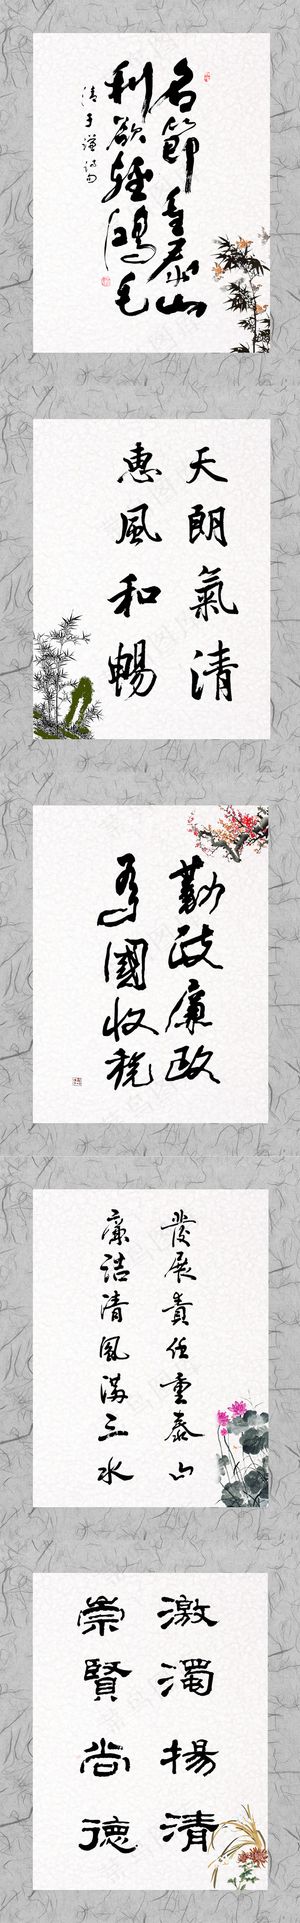 名節重泰山
利欲輕鴻毛
清于謙詩句
天朗氣清
惠風和暢
勤政廉政
為國收稅
發展責任重泰山
廉詰清風滿三水
激濁揚清
崇賢尚德